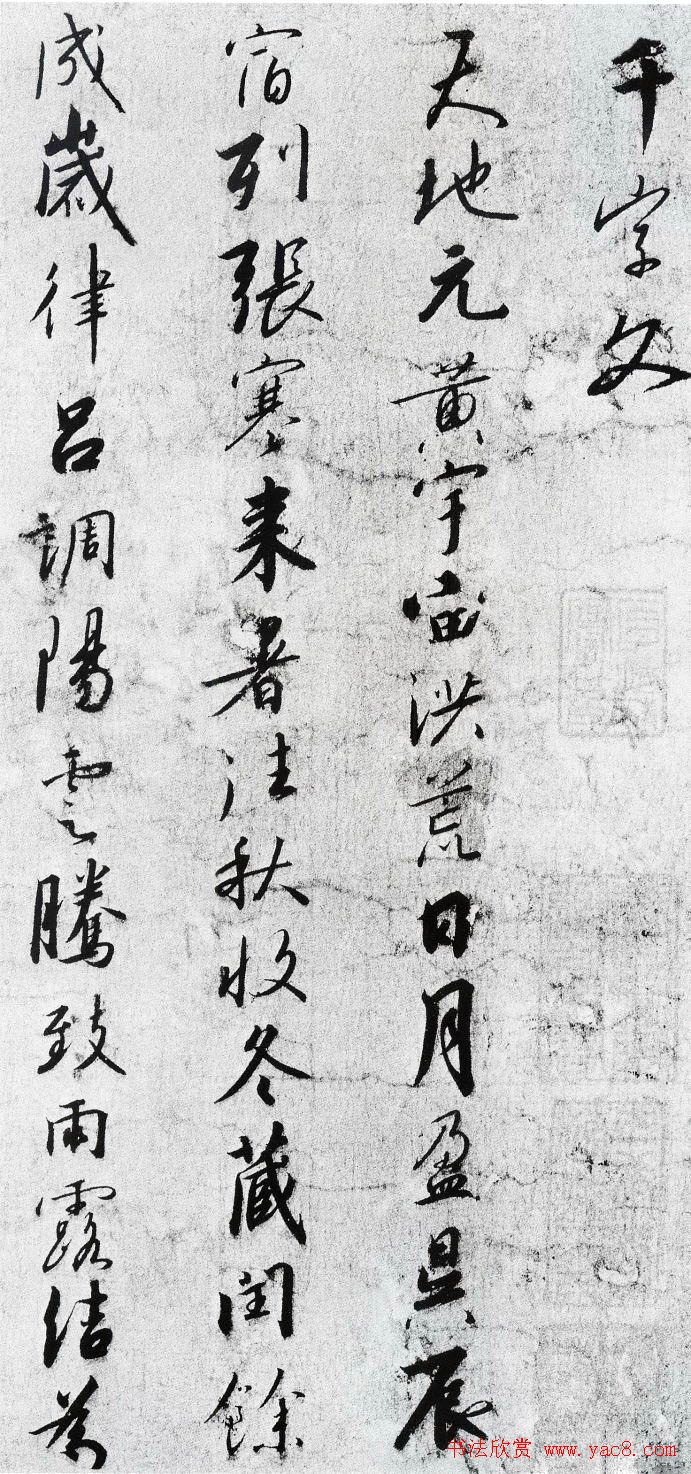 千字文
天地元黄宇宙洪荒日月盈昃辰
宿列張寒来暑往秋收冬藏閏餘
成歲律吕調陽雲騰致雨露結為
书法欣赏 www.yac8.com